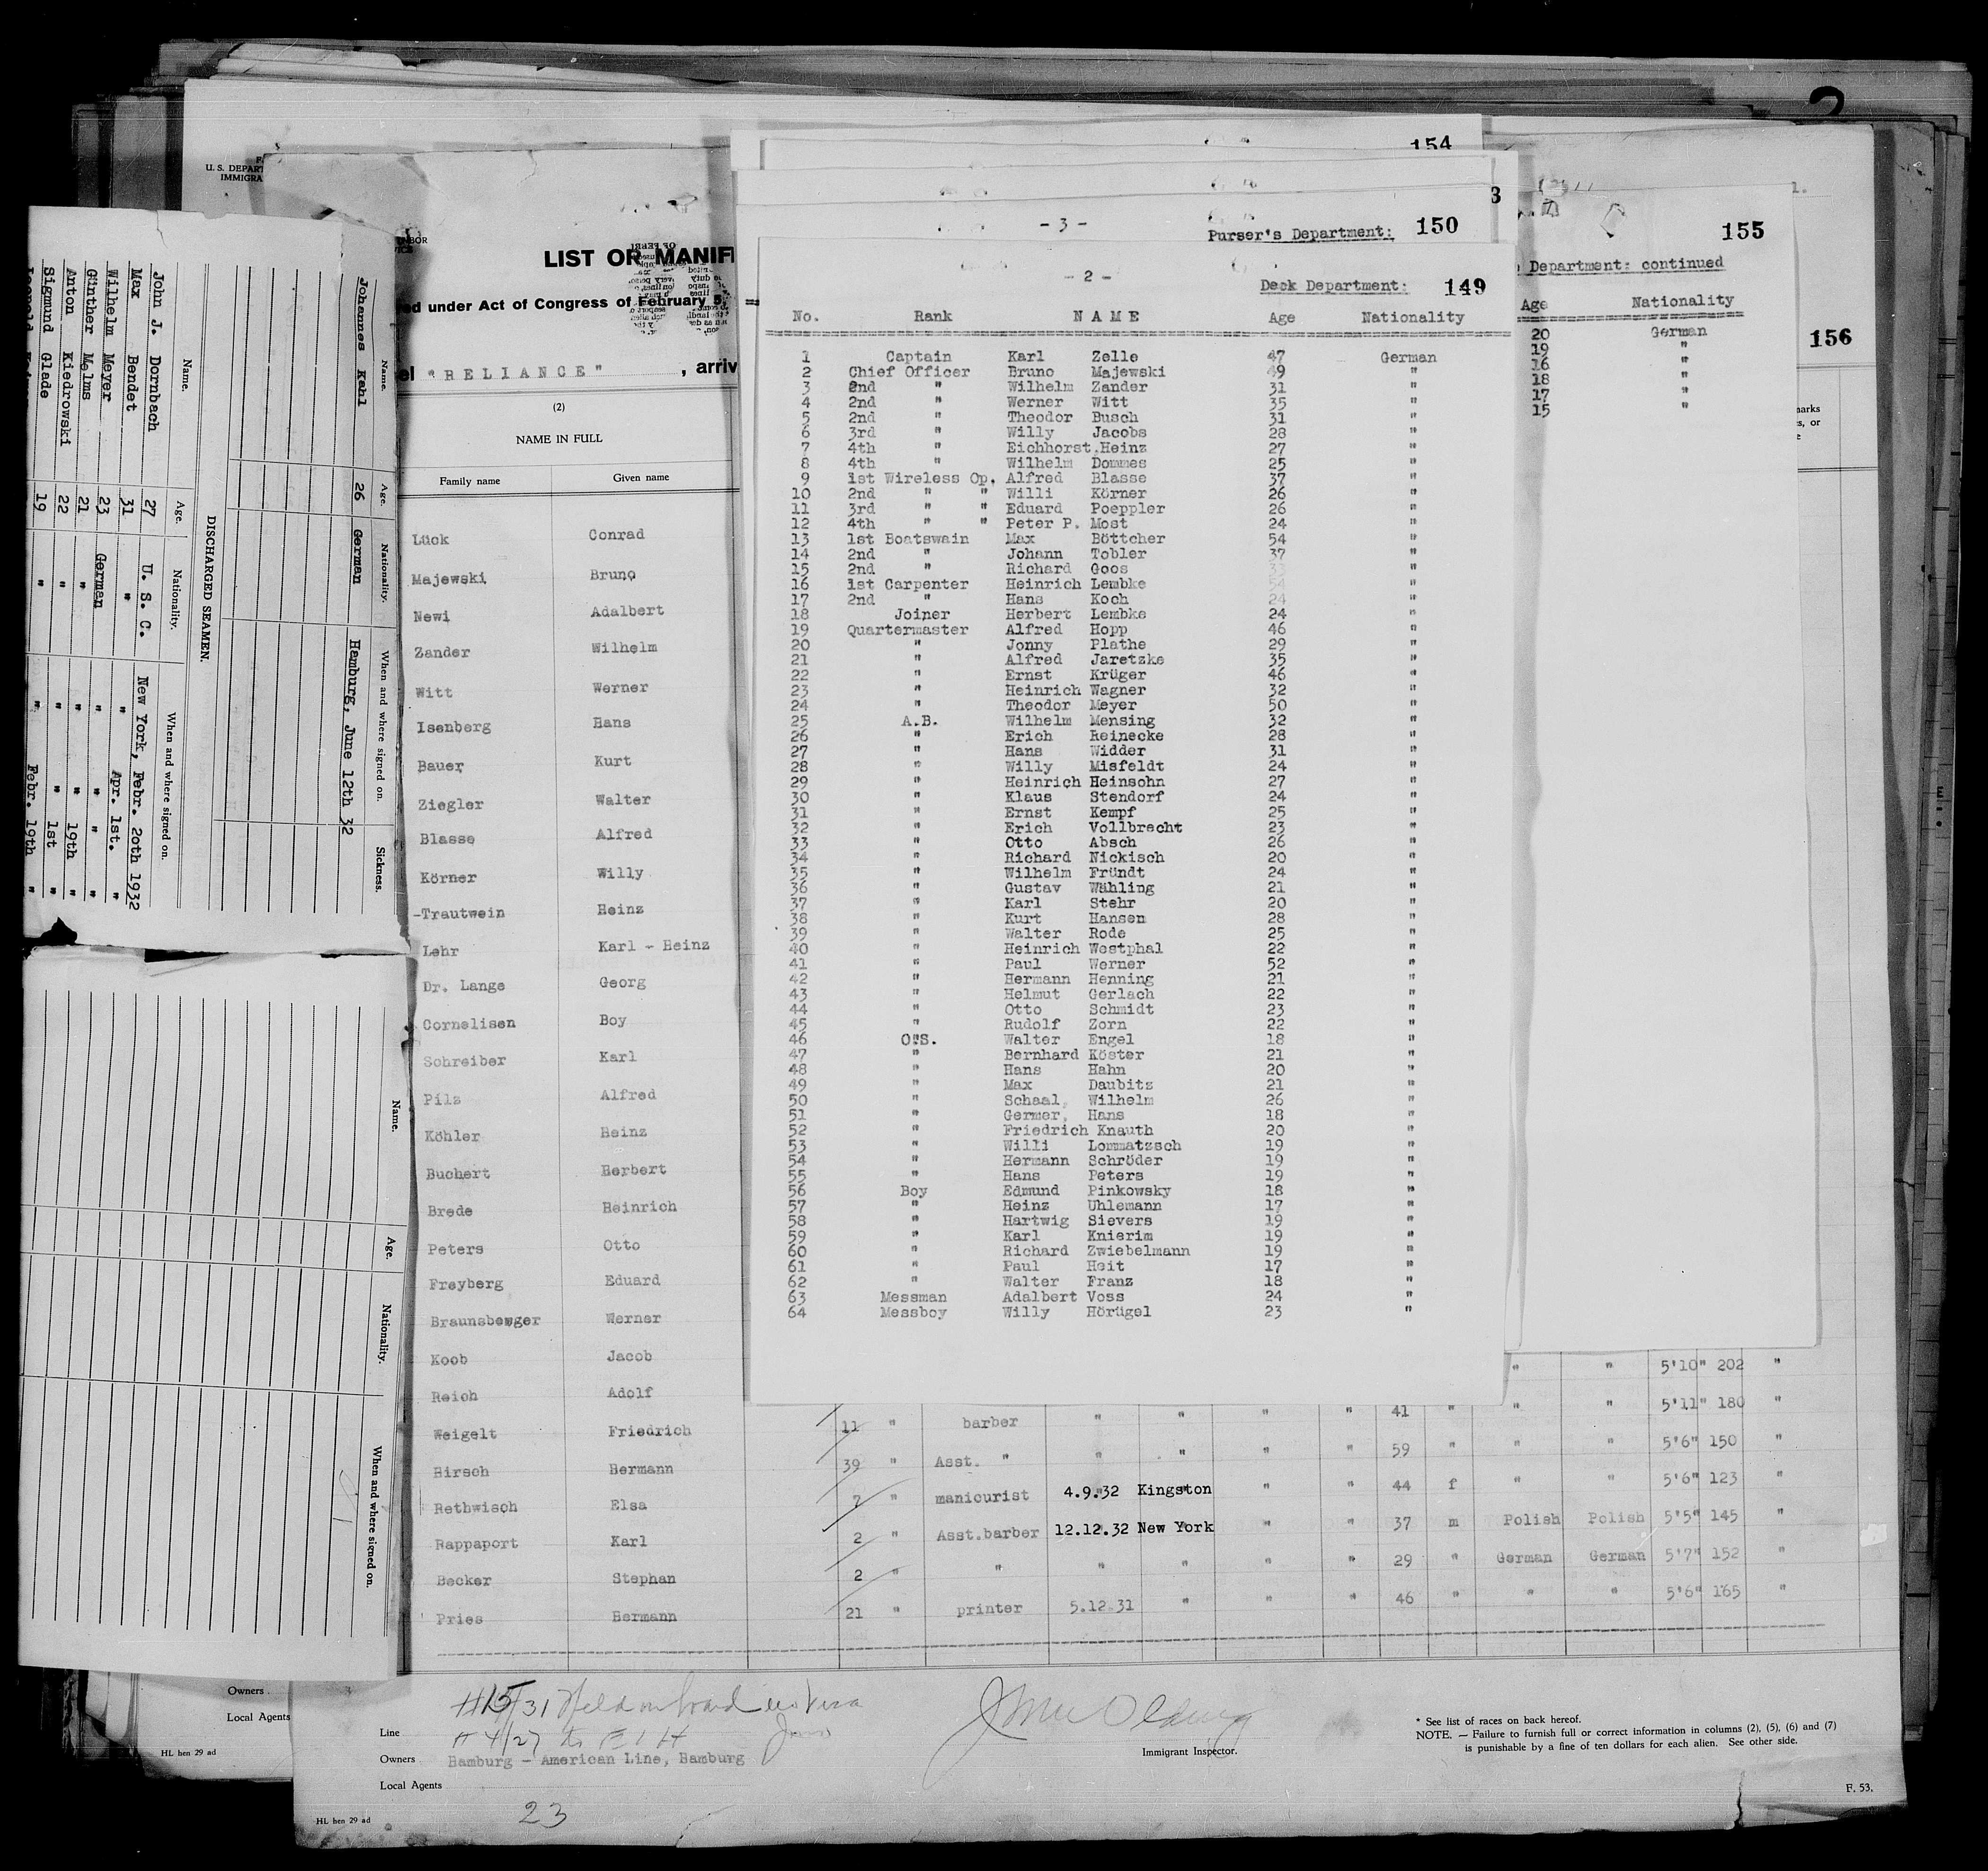 154
150
- 3 -
Purser's Department:
155
Department: continued
Age Nationality
20 German
19 "
16 "
18 "
17 "
15 "
156
149
- 2 -
Deck Department:
No. Rank NAME Age Nationality
1 Captain Karl Zelle 47 German
2 Chief Officer Bruno Majewski 49 "
3 2nd " Wilhelm Zander 31 "
4 2nd " Werner Witt 35 "
5 2nd " Theodor Busch 31 "
6 3rd " Willy Jacobs 28 "
7 4th " Eichhorst,Heinz 27 "
8 4th " Wilhelm Dommes 25 "
9 1st Wireless Op. Alfred Blasse 37 "
10 2nd " " Willi Körner 26 "
11 3rd " " Eduard Poeppler 26 "
12 4th " " Peter P. Most 24 "
13 1st Boatswain Max Böttcher 54 "
14 2nd " Johann Tobler 37 "
15 2nd " Richard Goos 33 "
16 1st Carpenter Heinrich Lembke 54 "
17 2nd " Hans Koch 24 "
18 Joiner Herbert Lembke 24 "
19 Quartermaster Alfred Hopp 46 "
20 " Jonny Plathe 29 "
21 " Alfred Jaretzke 35 "
22 " Ernst Krüger 46 "
23 " Heinrich Wagner 32 "
24 " Theodor Meyer 50 "
25 A.B. Wilhelm Mensing 32 "
26 " Erich Reinecke 28 "
27 " Hans Widder 31 "
28 " Willy Misfeldt 24 "
29 " Heinrich Heinsohn 27 "
30 " Klaus Stendorf 24 "
31 " Ernst Kempf 25 "
32 " Erich Vollbrecht 23 "
33 " Otto Absch 26 "
34 " Richard Nickisch 20 "
35 " Wilhelm Fründt 24 "
36 " Gustav Wähling 21 "
37 " Karl Stehr 20 "
38 " Kurt Hansen 28 "
39 " Walter Rode 25 "
40 " Heinrich Westphal 22 "
41 " Paul Werner 52 "
42 " Hermann Henning 21 "
43 " Helmut Gerlach 22 "
44 " Otto Schmidt 23 "
45 " Rudolf Zorn 22 "
46 O.S. Walter Engel 18 "
47 " Bernhard Köster 21 "
48 " Hans Hahn 20 "
49 " Max Daubitz 21 "
50 " Schaal, Wilhelm 26 "
51 " Germer, Hans 18 "
52 " Friedrich Knauth 20 "
53 " Willi Lommatzsch 19 "
54 " Hermann Schröder 19 "
55 " Hans Peters 19 "
56 Boy Edmund Pinkowsky 18 "
57 " Heinz Uhlemann 17 "
58 " Hartwig Sievers 19 "
59 " Karl Knierim 19 "
60 " Richard Zwiebelmann 19 "
61 " Paul Heit 17 "
62 " Walter Franz 18 "
63 Messman Adalbert Voss 24 "
64 Messboy Willy Hörügel 23 "
U. S. DEPART
IMMIGRA
LIST OR MANIF
ed under Act of Congress of February 5,
el "RELIANCE" , arriv
(2)
NAME IN FULL
Family name Given name
Lück Conrad
Majewski Bruno
Newi Adalbert
Zander Wilhelm
Witt Werner
Isenberg Hans
Bauer Kurt
Ziegler Walter
Blasse Alfred
Körner Willy
-Trautwein Heinz
Lehr Karl - Heinz
Dr. Lange Georg
Cornelisen Boy
Schreiber Karl
Pilz Alfred
Köhler Heinz
Buchert Herbert
Brede Heinrich
Peters Otto
Freyberg Eduard
Braunsberger Werner
Koob Jacob " " 5'10" 202 "
Reich Adolf " " 5'11" 180 "
Weigelt Friedrich 11 " barber " " " " 41 " " " 5'6" 150 "
Hirsch Hermann 39 " Asst. " " " " " 59 " " " 5'6" 123 "
Rethwisch Elsa 7 " manicurist 4.9.32 Kingston " " 44 f
Rappaport Karl 2 " Asst.barber 12.12.32 New York " " 37 m Polish Polish 5'5" 145 "
Becker Stephan 2 " " " " " " 29 " German German 5'7" 152 "
Pries Hermann 21 " printer 5.12.31 " " " 46 " " " 5'6" 165 "
Line
Owners Hamburg - American Line, Hamburg
Local Agents
Immigrant Inspector.
* See list of races on back hereof.
NOTE. — Failure to furnish full or correct information in columns (2), (5), (6) and (7)
is punishable by a fine of ten dollars for each alien. See other side.
F. 53.
23
HL hen 29 ad
Owners
Local Agents
HL hen 29 ad
Name. Age. Nationality. When and where signed on. Sickness.
Johannes Kahl 26 German Hamburg, June 12th 32
DISCHARGED SEAMEN.
Name. Age. Nationality. When and where signed on.
John J. Dornbach 27 U. S. C. New York, Febr. 20th 1932
Max Bendet 31 " " Apr. 1st. "
Wilhelm Meyer 23 German " " "
Günther Melms 21 " " " 19th "
Anton Kiedrowski 22 " " " 1st "
Sigmund Glade 19 " " Febr. 19th "
Name. Age. Nationality. When and where signed on.